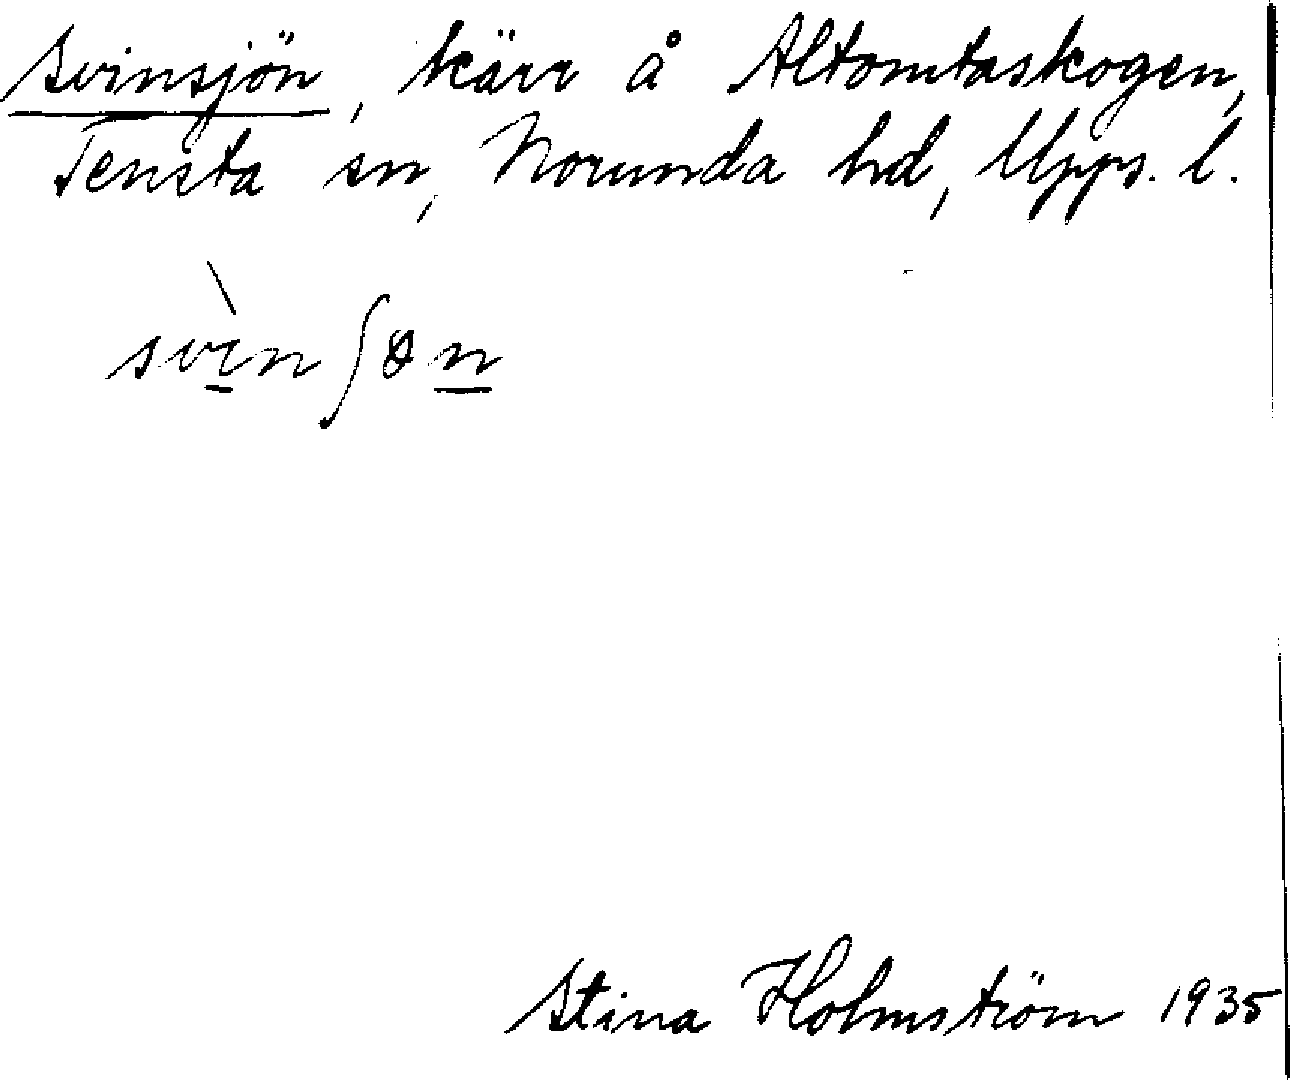 Svinsjön, kärr å Altomtaskogen,
Tensta sn, Norunda hd, Upps. l.
svìnʃɷn
Stina Holmström 1935